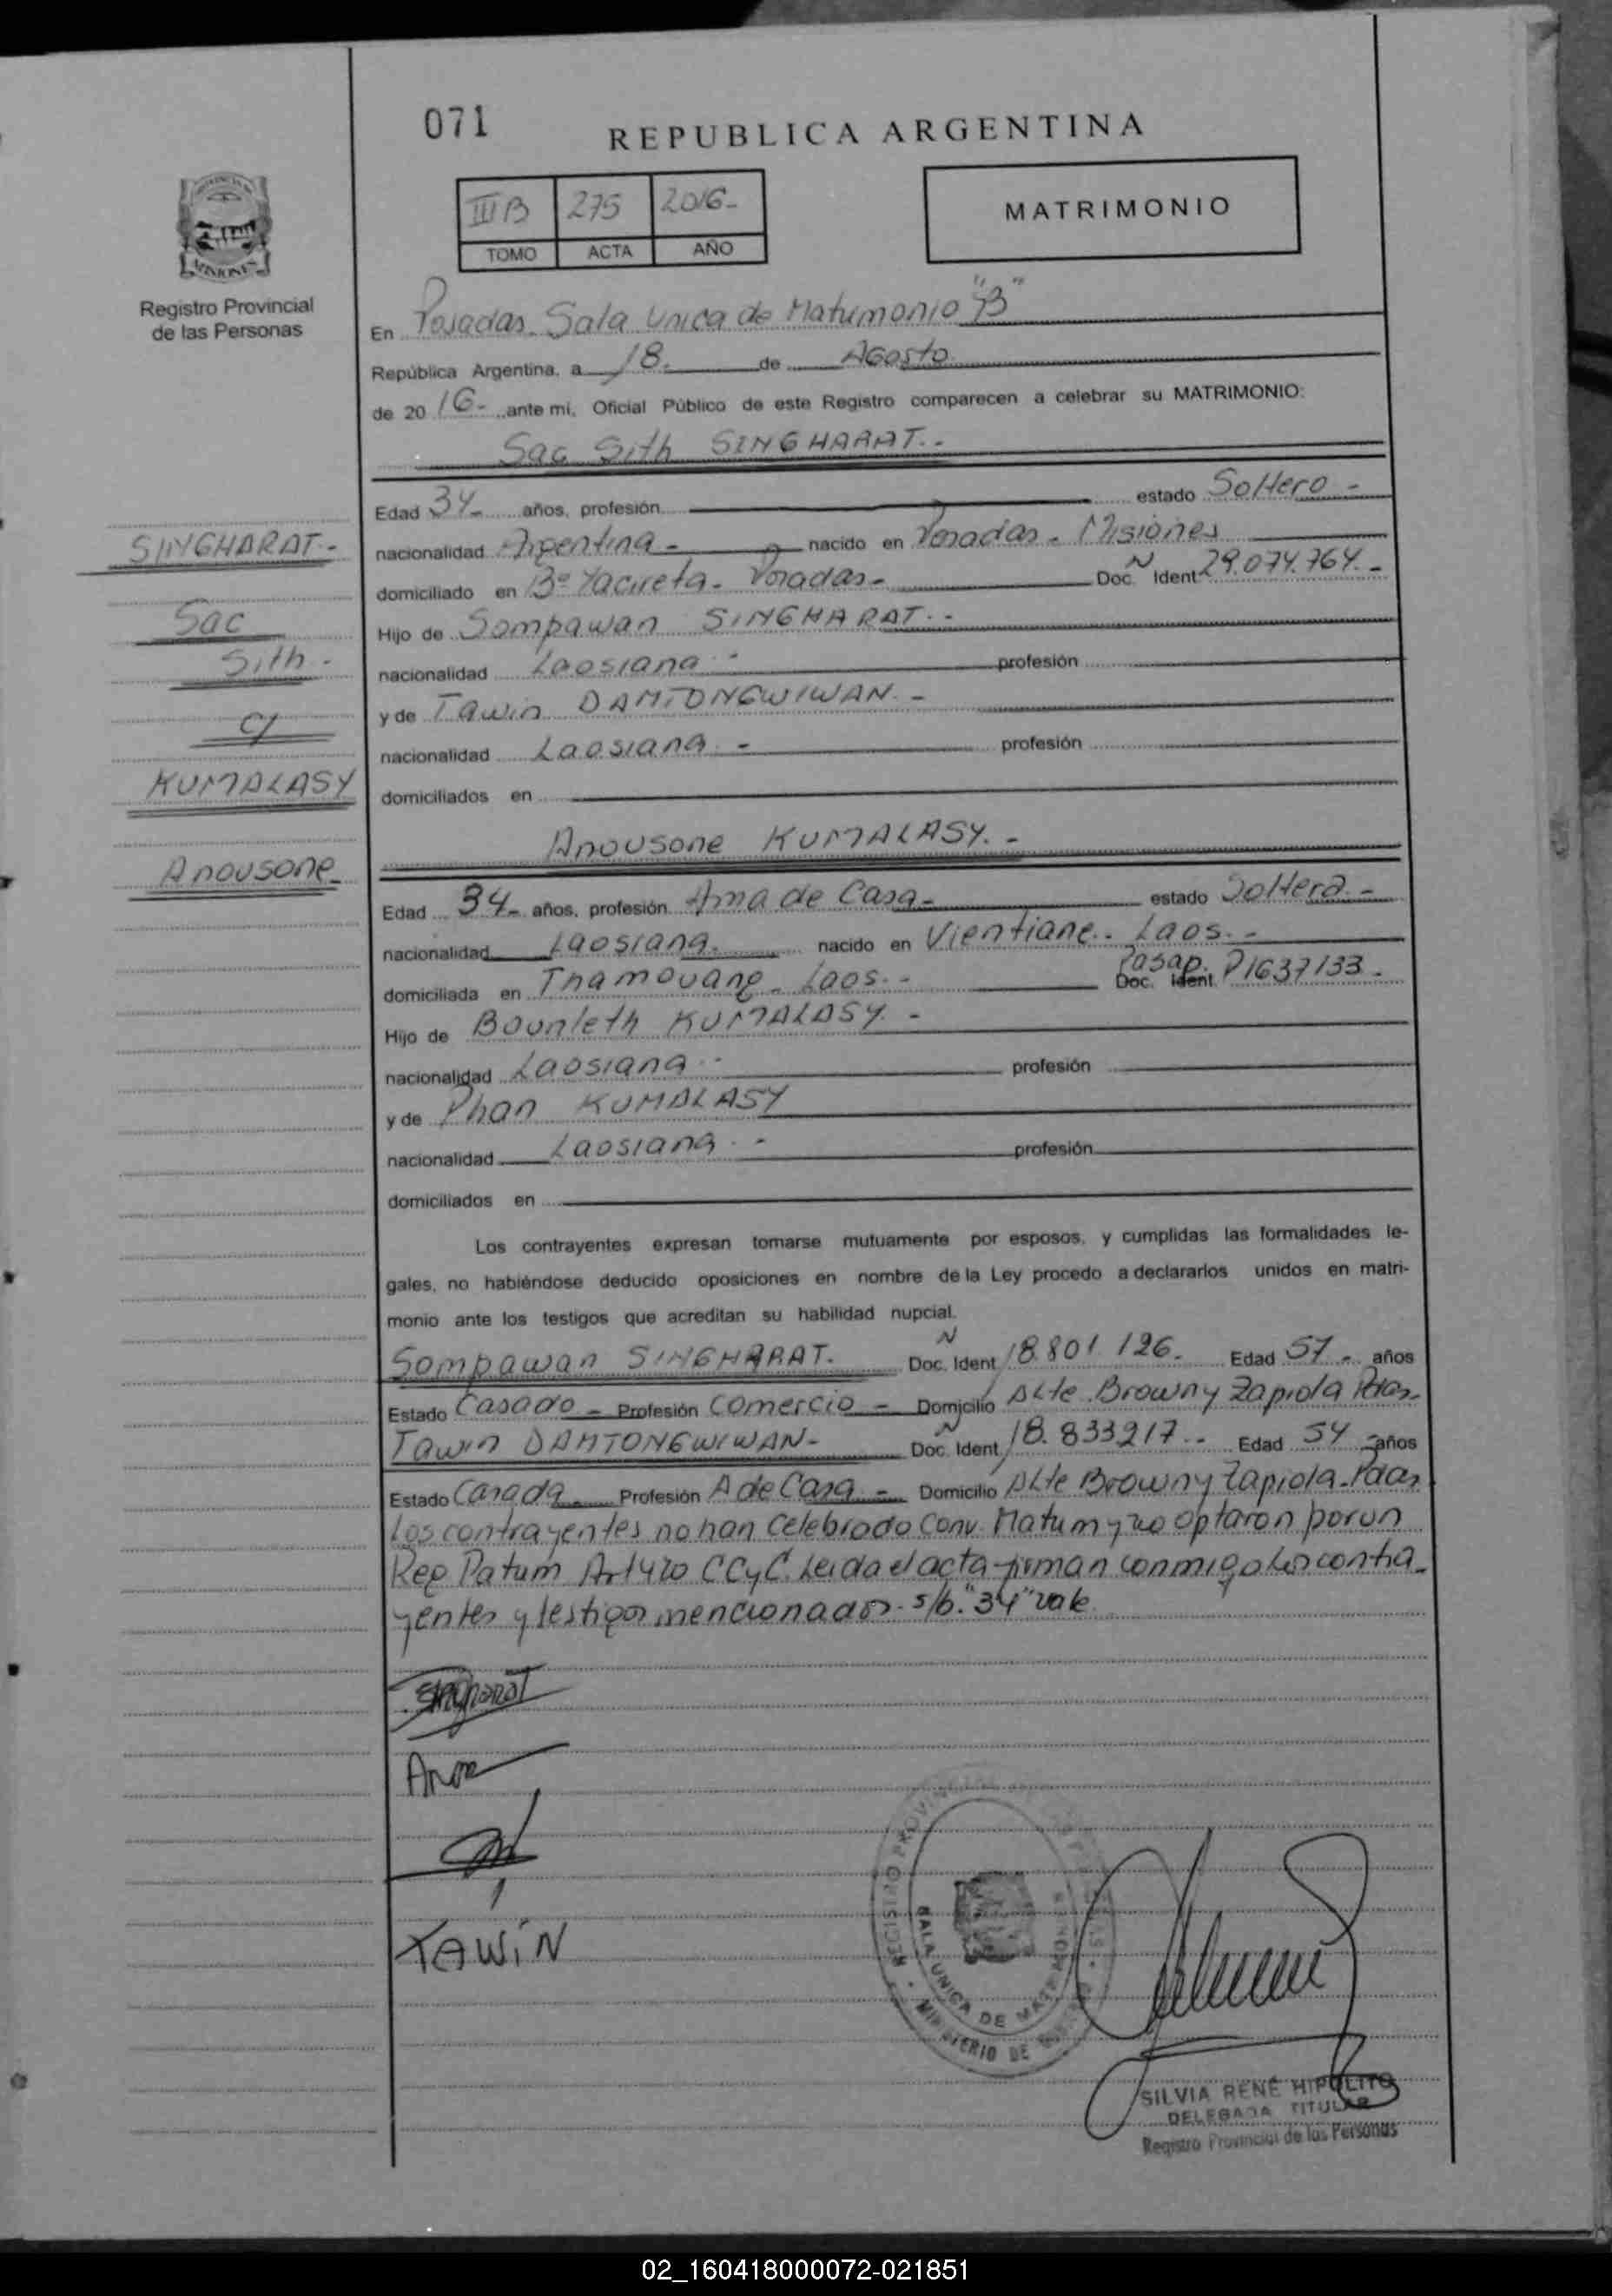 071
REPUBLICA ARGENTINA
III B 275 2016-
TOMO ACTA AÑO
MATRIMONIO
MISIONES
Registro Provincial
de las Personas
En Posadas. Sala Unica de Matrimonio "B"
República Argentina, a 18. de Agosto.
de 20 16- ante mi, Oficial Público de este Registro comparecen a celebrar su MATRIMONIO:
Sac Sith SINGHARAT.-
Edad 34- años, profesión estado Soltero -
nacionalidad Argentina - nacido en Posadas - Misiones
domiciliado en Bº Yacireta - Posadas - Doc. Ident N 29.074.764. -
Hijo de Sompawan SINGHARAT. -
nacionalidad Laosiana - profesión
y de Tawin DAMTONGWIWAN. -
nacionalidad Laosiana - profesión
domiciliados en
SINGHARAT -
Sac
Sith -
C/
KUMALASY
Anousone
Anousone KUMALASY. -
Edad 34- años, profesión Ama de Casa - estado Soltera. -
nacionalidad Laosiana. nacido en Vientiane. Laos. -
domiciliada en Thamouang - Laos. - Doc. Ident. Pasap. P1637133.
Hijo de Bounleth KUMALASY. -
nacionalidad Laosiana - profesión
y de Phan KUMALASY
nacionalidad Laosiana. - profesión
domiciliados en
Los contrayentes expresan tomarse mutuamente por esposos, y cumplidas las formalidades le-
gales, no habiéndose deducido oposiciones en nombre de la Ley procedo a declararlos unidos en matri-
monio ante los testigos que acreditan su habilidad nupcial.
Sompawan SINGHARAT. Doc. Ident N 18.801.126. Edad 57 - años
Estado Casado - Profesión Comercio - Domicilio Alte Brown y Zapiola Pdas-
Tawin DAMTONGWIWAN - Doc. Ident. N 18.833217. - Edad 54 - años
Estado Casada Profesión A de Casa - Domicilio Alte Brown y Zapiola - Pdas
Los contrayentes no han celebrado Conv. Matrim y no optaron por un
Reg Patrim Art 420 CCyC. Leida el acta firman conmigo los contra-
yentes y testigos mencionados. s/b. "34" vale.
Singharat
Anou
TAWIN
REGISTRO PROVINCIAL DE LAS PERSONAS
SALA UNICA DE MATRIMONIO
MINISTERIO DE GOBIERNO
SILVIA RENÉ HIPOLITO
DELEGADA TITULAR
Registro Provincial de las Personas
02_160418000072-021851